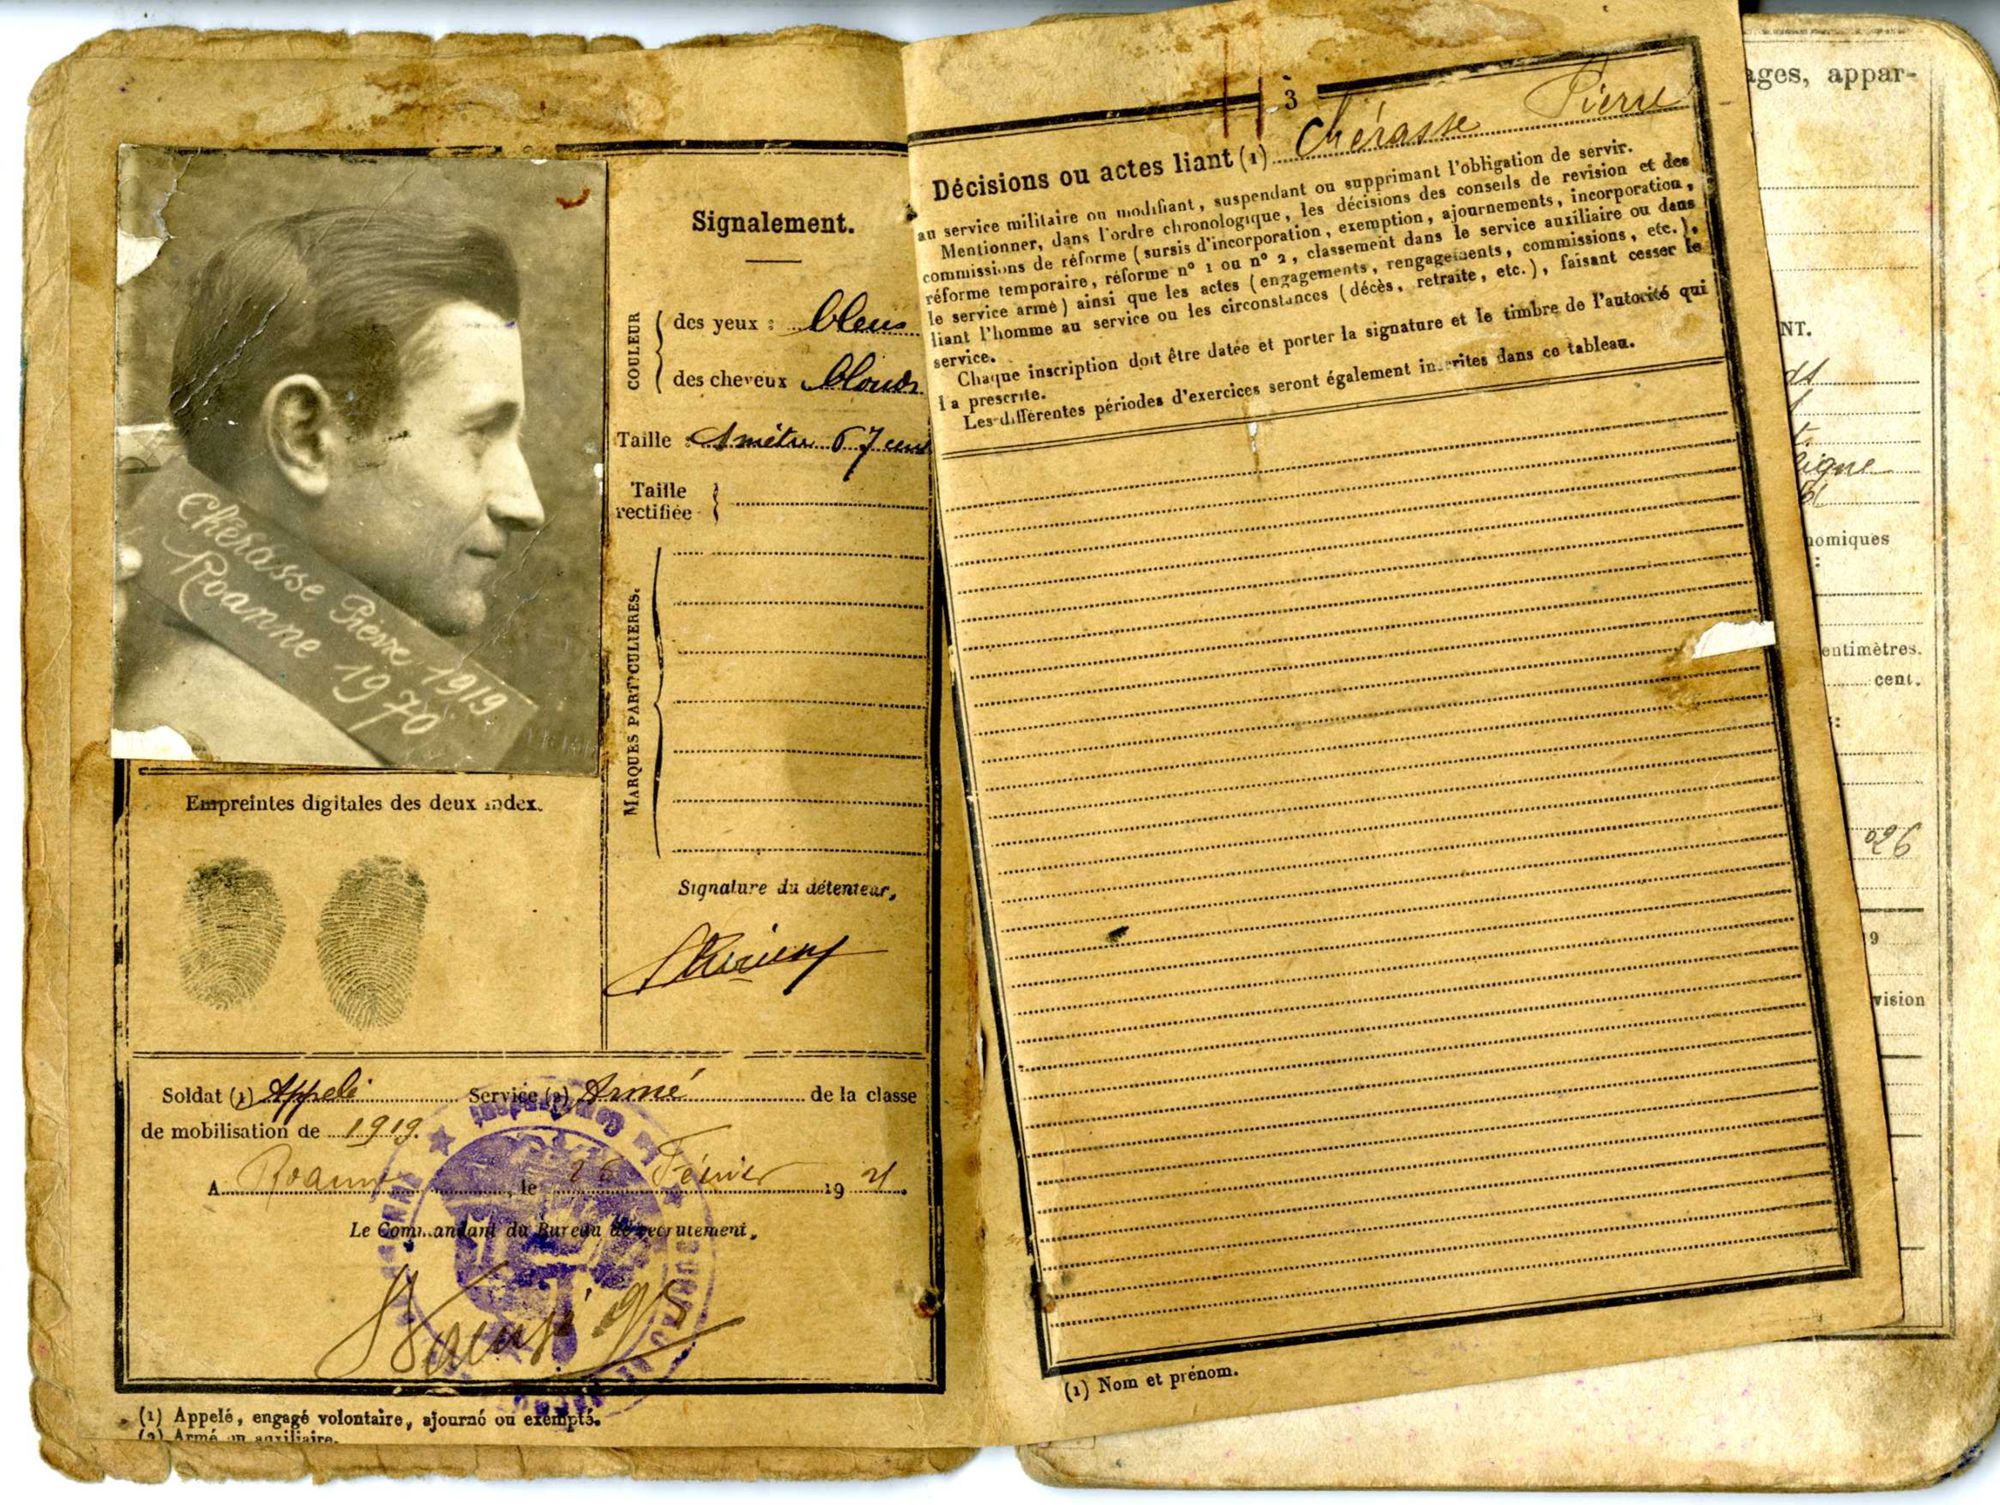 Chérasse Pierre 1919
Roanne 1970
Signalement.
COULEUR
des yeux : bleus
des cheveux blonds
Taille : 1 mètre 67 cent
Taille
rectifiée
MARQUES PARTICULIÈRES.
Empreintes digitales des deux index.
Signature du détenteur,
Soldat (1) Appelé Service (2) Armé de la classe
de mobilisation de 1919.
A Roanne, le 26 Février 1921.
Le Commandant du Bureau de recrutement,
(1) Appelé, engagé volontaire, ajourné ou exempté.
(2) Armé ou auxiliaire.
3
Décisions ou actes liant (1) Chérasse Pierre
au service militaire ou modifiant, suspendant ou supprimant l'obligation de servir.
Mentionner, dans l'ordre chronologique, les décisions des conseils de revision et des
commissions de réforme (sursis d'incorporation, exemption, ajournements, incorporation,
réforme temporaire, réforme n° 1 ou n° 2, classement dans le service auxiliaire ou dans
le service armé) ainsi que les actes (engagements, rengagements, commissions, etc.),
liant l'homme au service ou les circonstances (décès, retraite, etc.), faisant cesser le
service.
Chaque inscription doit être datée et porter la signature et le timbre de l'autorité qui
l'a prescrite.
Les différentes périodes d'exercices seront également inscrites dans ce tableau.
(1) Nom et prénom.
ages, appar-
NT.
ligne
nomiques
:
entimètres.
cent.
:
026
19
vision